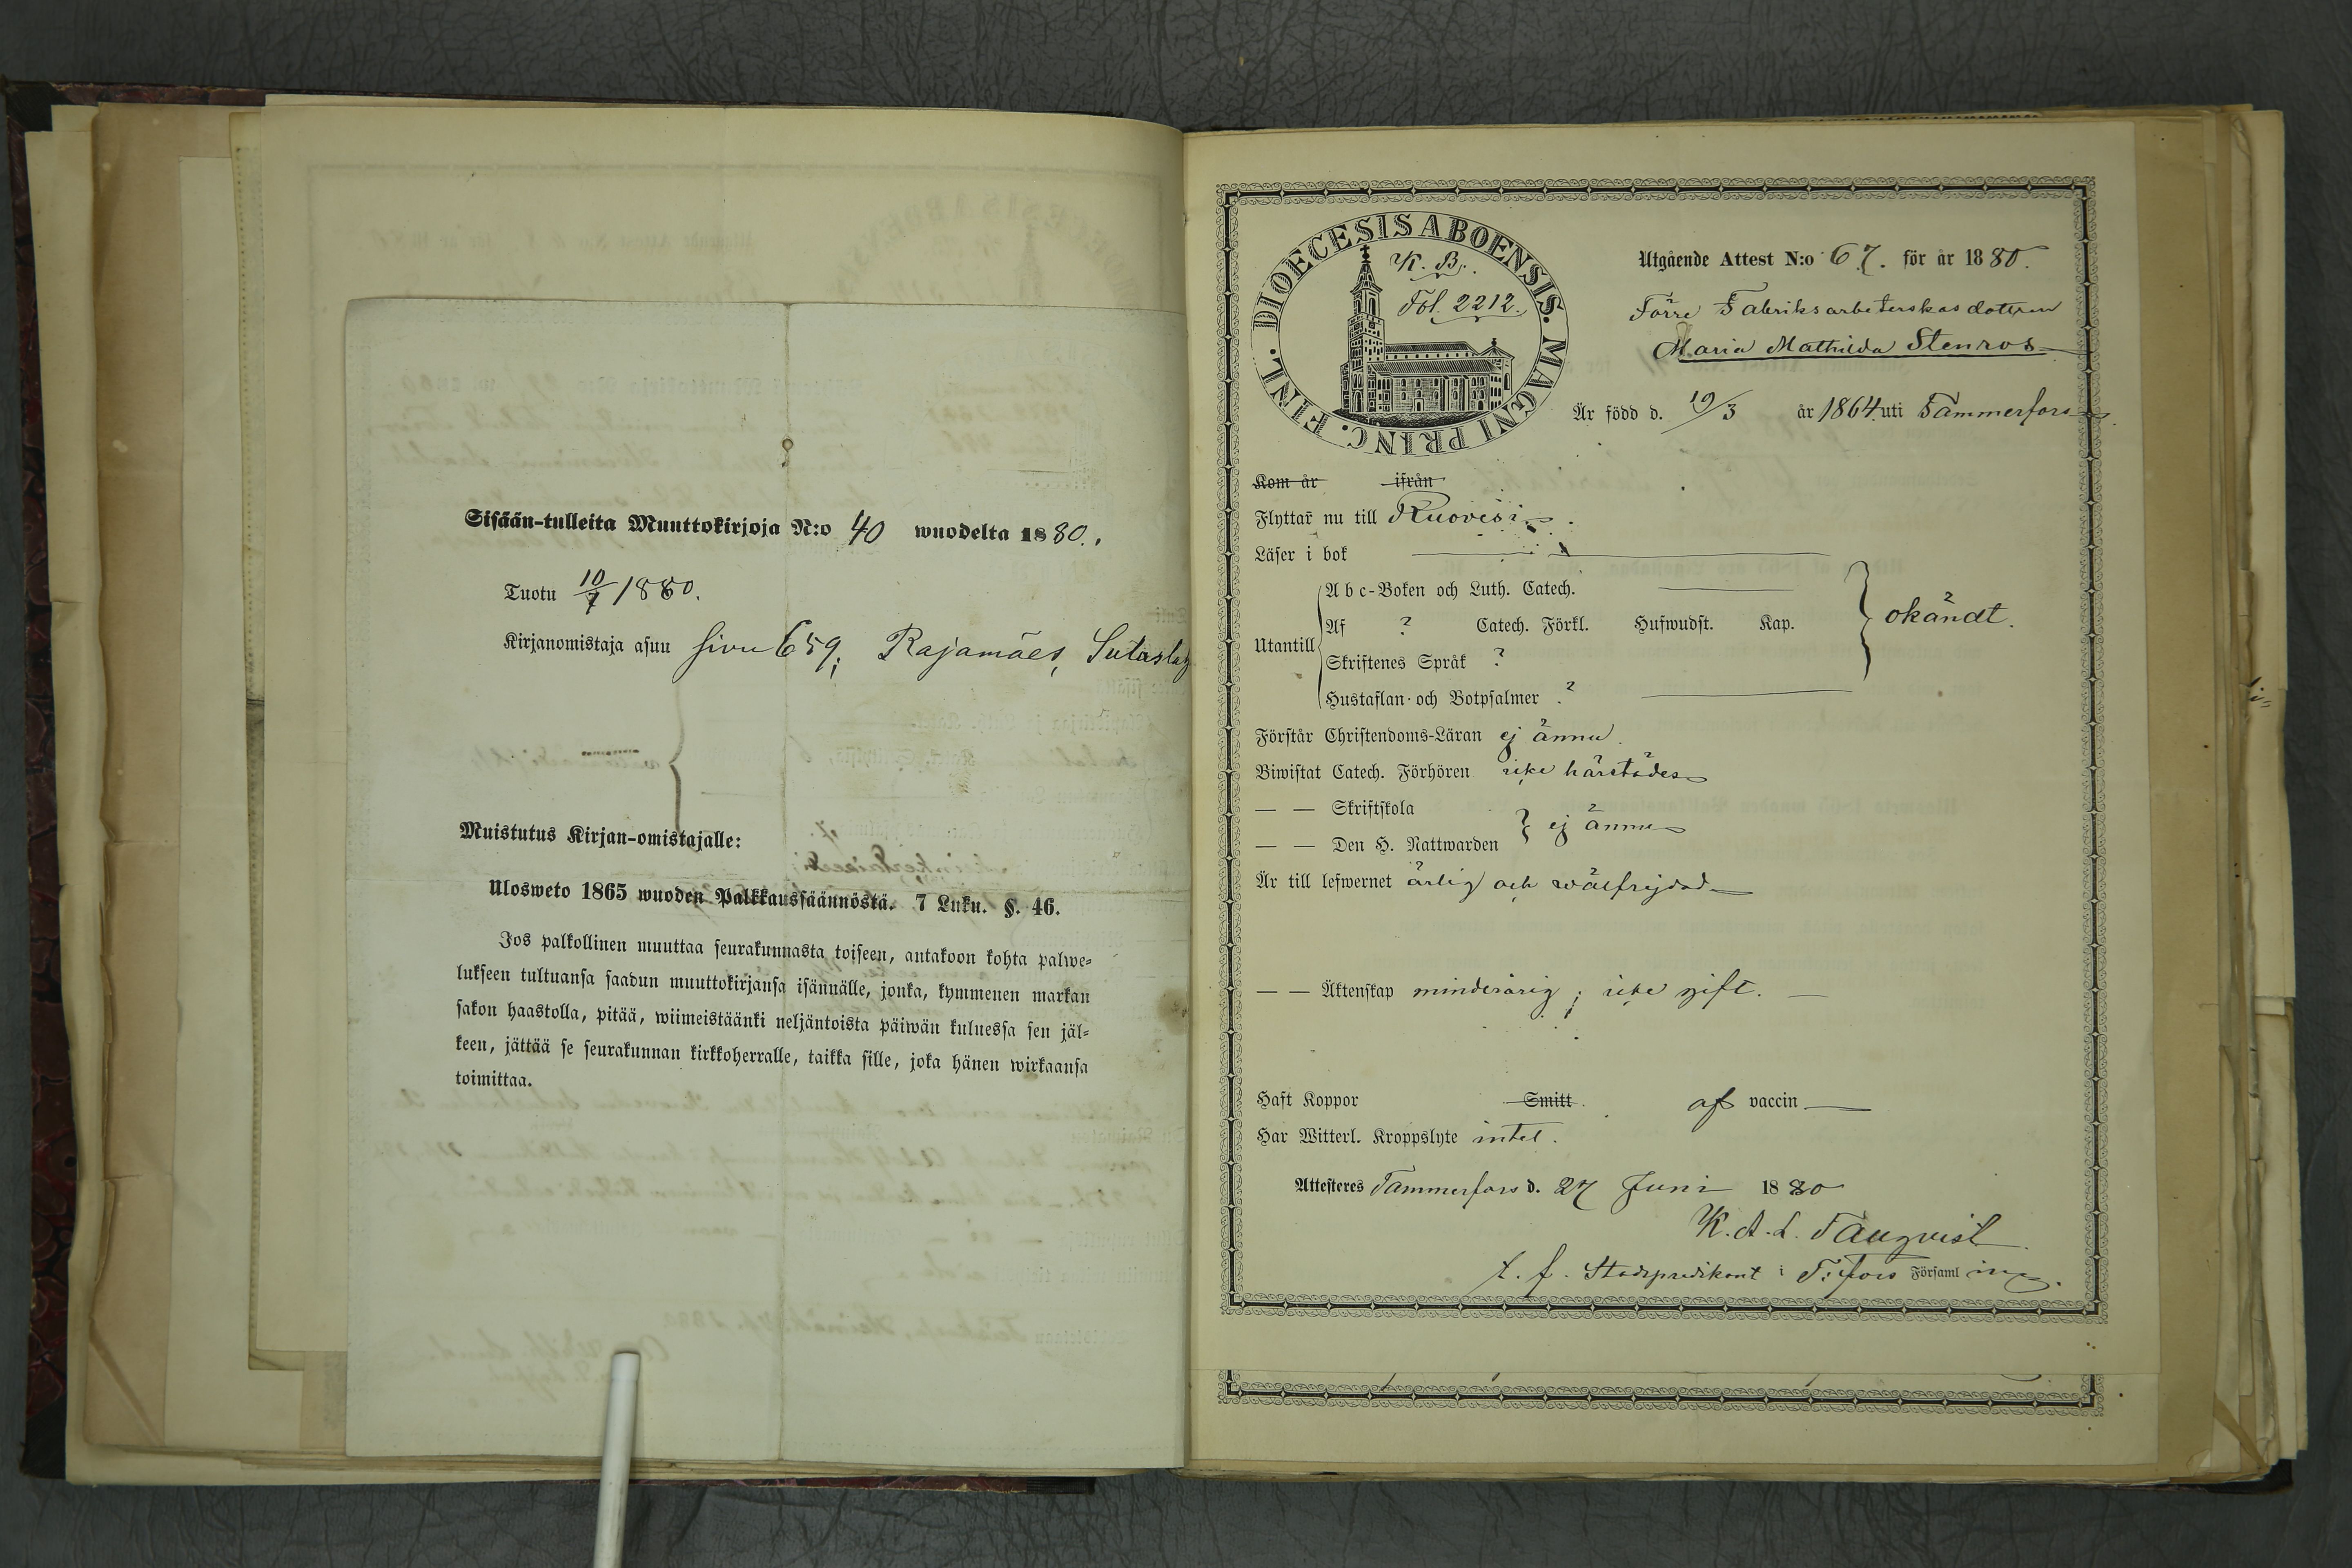 Sisään-tulleita Muuttokirjoja N:o 40 wuodelta 1880.
Tuotu 10/7 1880.
Kirjanomistaja asuu sivu 659; Rajamäes,
Muistutus Kirjan-omistajalle:
Ulosweto 1865 wuoden Palkkaussäännöstä. 7 Luku. §. 46.
Jos palkollinen muuttaa seurakunnasta toiseen, antakoon kohta palwe-
lukseen tultuansa saadun muuttokirjansa isännälle, jonka, kymmenen markan
sakon haastolla, pitää, wiimeistäänki neljäntoista päiwän kuluessa sen jäl-
keen, jättää se seurakunnan kirkkoherralle, taikka sille, joka hänen wirkaansa
toimittaa.
DIOECESIS ABOENSIS. MAGNI PRINC. FINL.
K. B.
Fol. 2212.
Utgående Attest N:o 67. för år 1880.
Förre Fabriksarbeterskasdottren
Maria Mathilda Stenros
Är född d. 19/3 år 1864 uti Tammerfors
Kom år ifrån
Flyttar nu till Ruovesi.
Läser i bok
Utantill
Abc-Boken och Luth. Catech.
Af ? Catech. Förkl. Hufwudst. Kap.
okändt.
Skriftenes Språk ?
Hustaflan- och Botpsalmer ?
Förstår Christendoms-Läran ej ännu
Biwistat Catech. Förhören icke härstädes
— — Skriftskola
— — Den H. Nattwarden
ej ännu
Är till lefwernet ärlig och wälfrejdad
— — Äktenskap minderårig; icke gift.
Haft Koppor Smitt af vaccin
Har Witterl. Kroppslyte intet.
Attesteres Tammerfors d. 27 Juni 1880
K. A. L.
t. f. Stadspredikant i T:fors Församling.